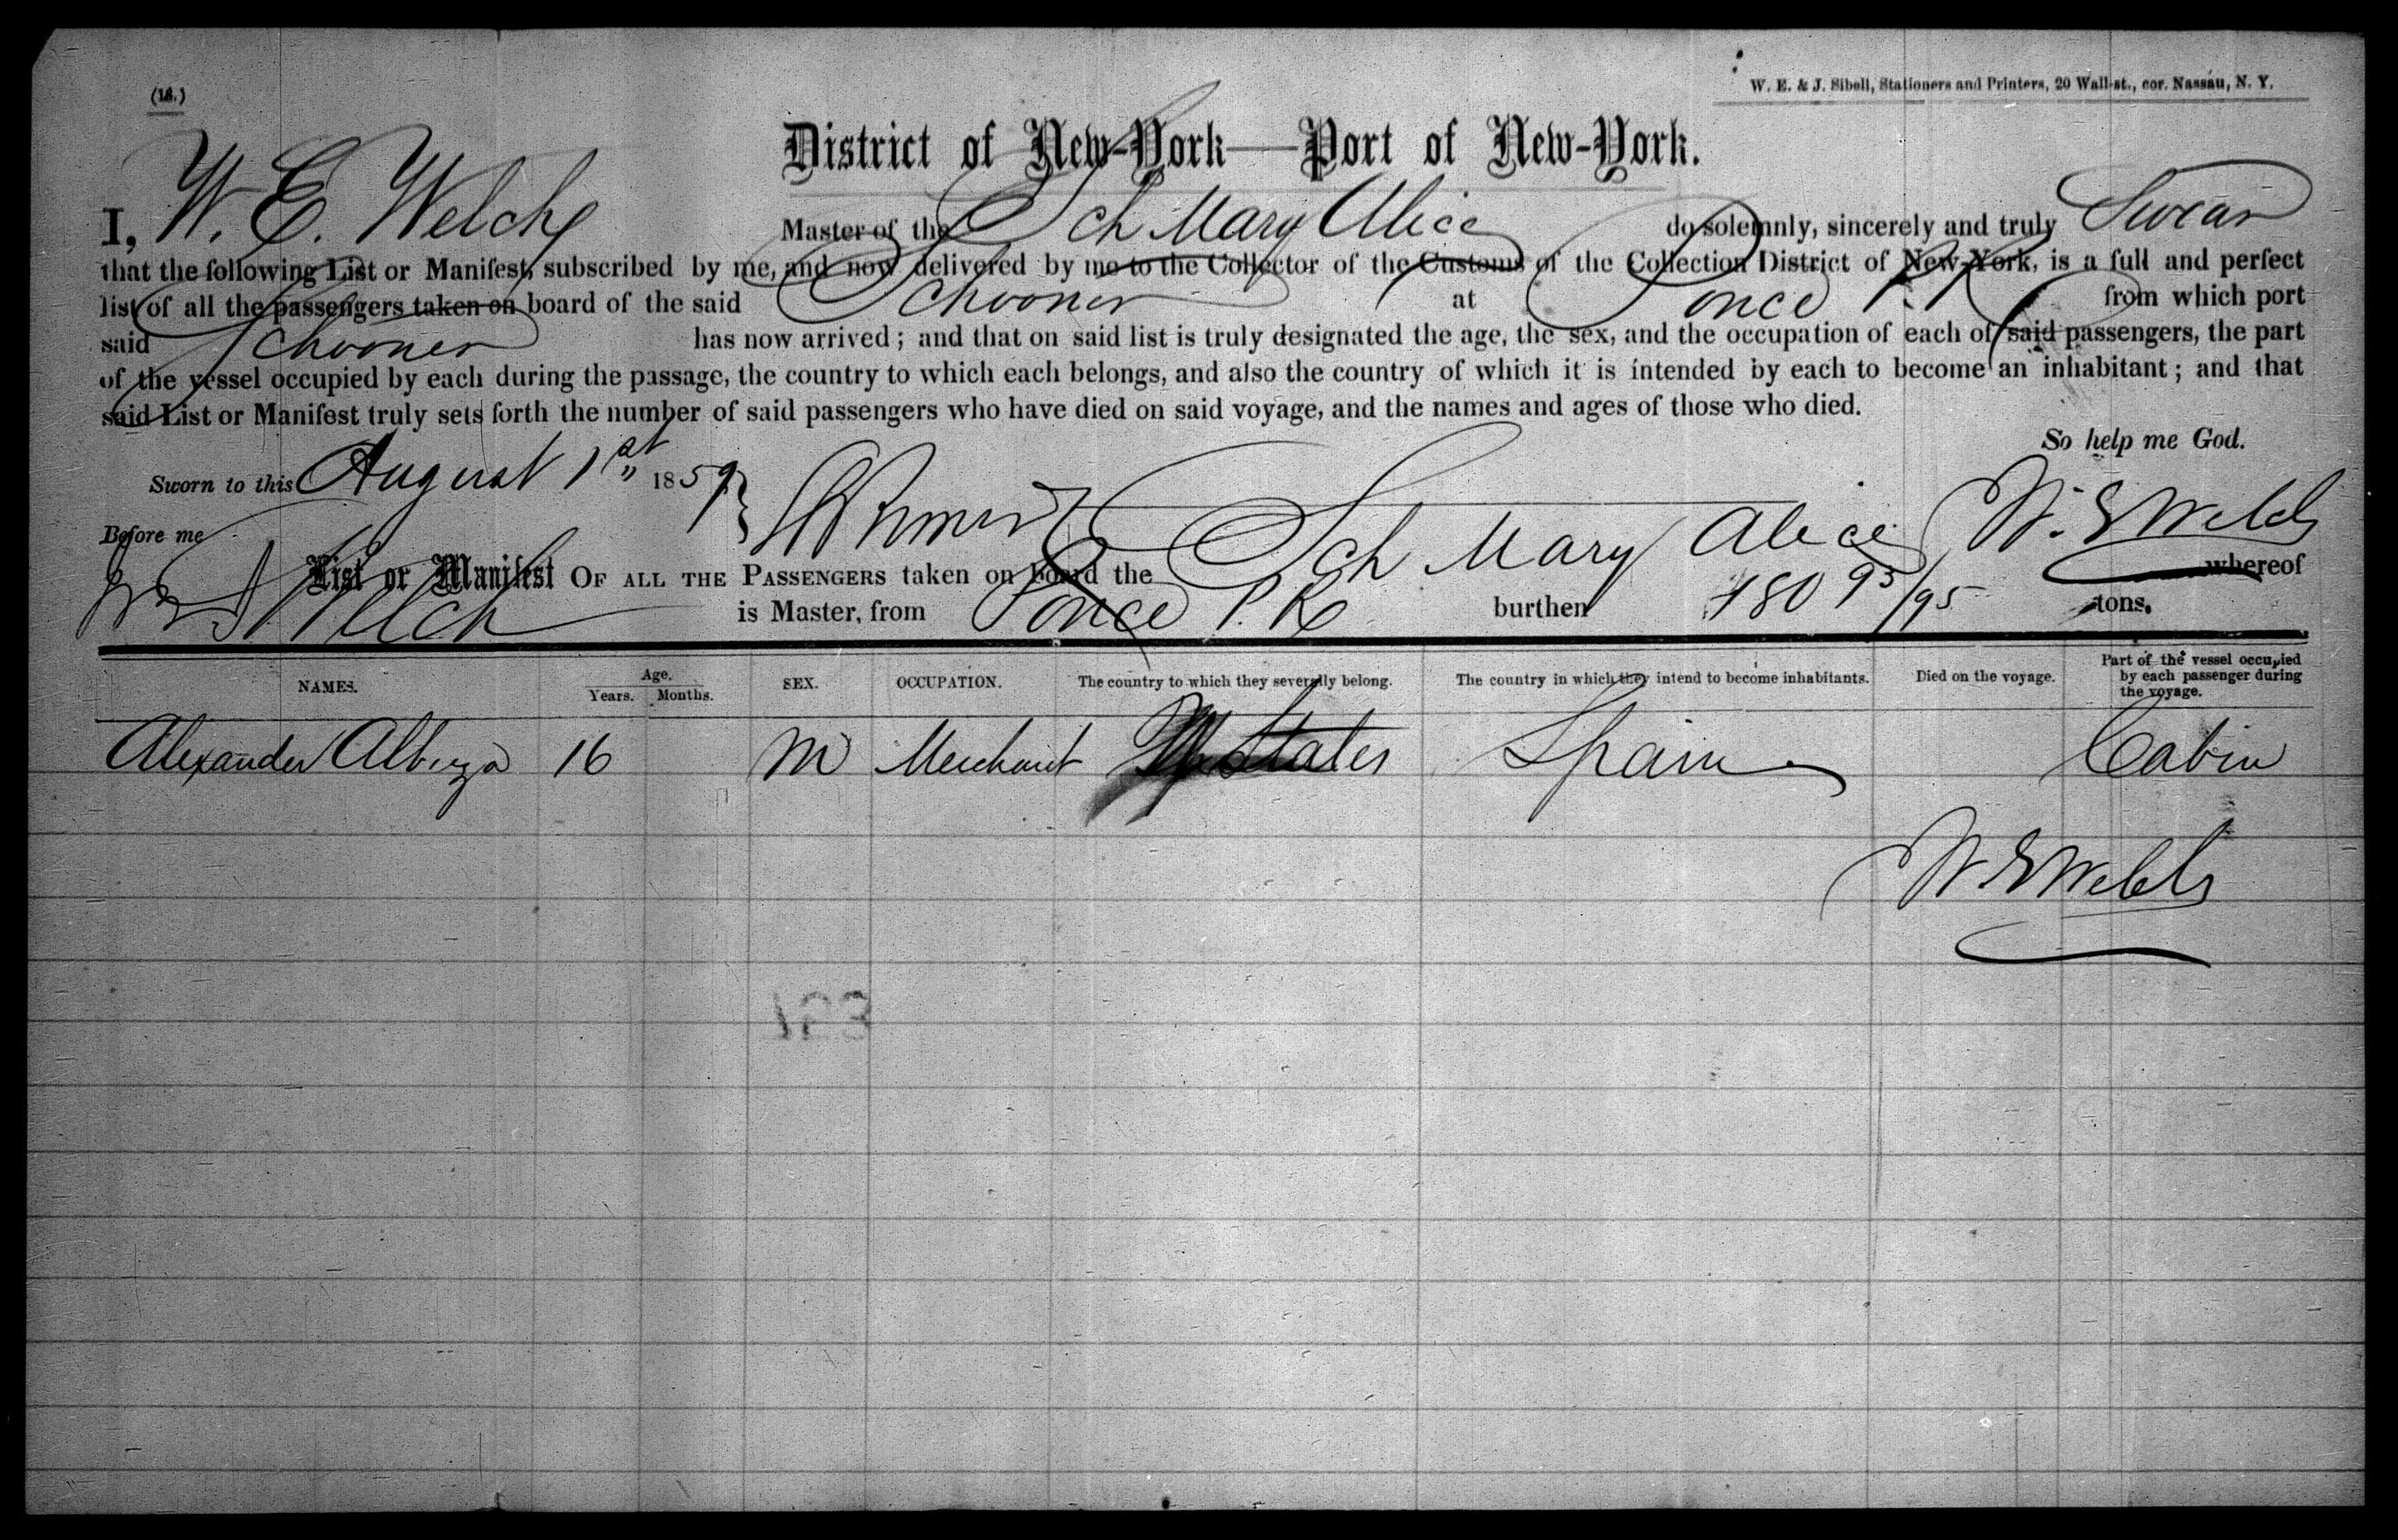 (18.)
W. E. & J. Sibell, Stationers and Printers, 20 Wall-st., cor. Nassau, N. Y.
District of New-York—Port of New-York.
I, W. E. Welch Master of the Sch Mary Alice do solemnly, sincerely and truly Swear
that the following List or Manifest, subscribed by me, and now delivered by me to the Collector of the Customs of the Collection District of New-York, is a full and perfect
list of all the passengers taken on board of the said Schooner at Ponce P. R. from which port
said Schooner has now arrived; and that on said list is truly designated the age, the sex, and the occupation of each of said passengers, the part
of the vessel occupied by each during the passage, the country to which each belongs, and also the country of which it is intended by each to become an inhabitant; and that
said List or Manifest truly sets forth the number of said passengers who have died on said voyage, and the names and ages of those who died.
So help me God.
Sworn to this August 1st 1859
Before me W. E Welch
List or Manifest OF ALL THE PASSENGERS taken on board the Sch Mary Alice whereof
Welch is Master, from Ponce P. R. burthen 180 93/95 tons.
NAMES. Age. Years. Months. SEX. OCCUPATION. The country to which they severally belong. The country in which they intend to become inhabitants. Died on the voyage. Part of the vessel occupied by each passenger during the voyage.
Alexander 16 M Merchant States Spain Cabin
W. E Welch